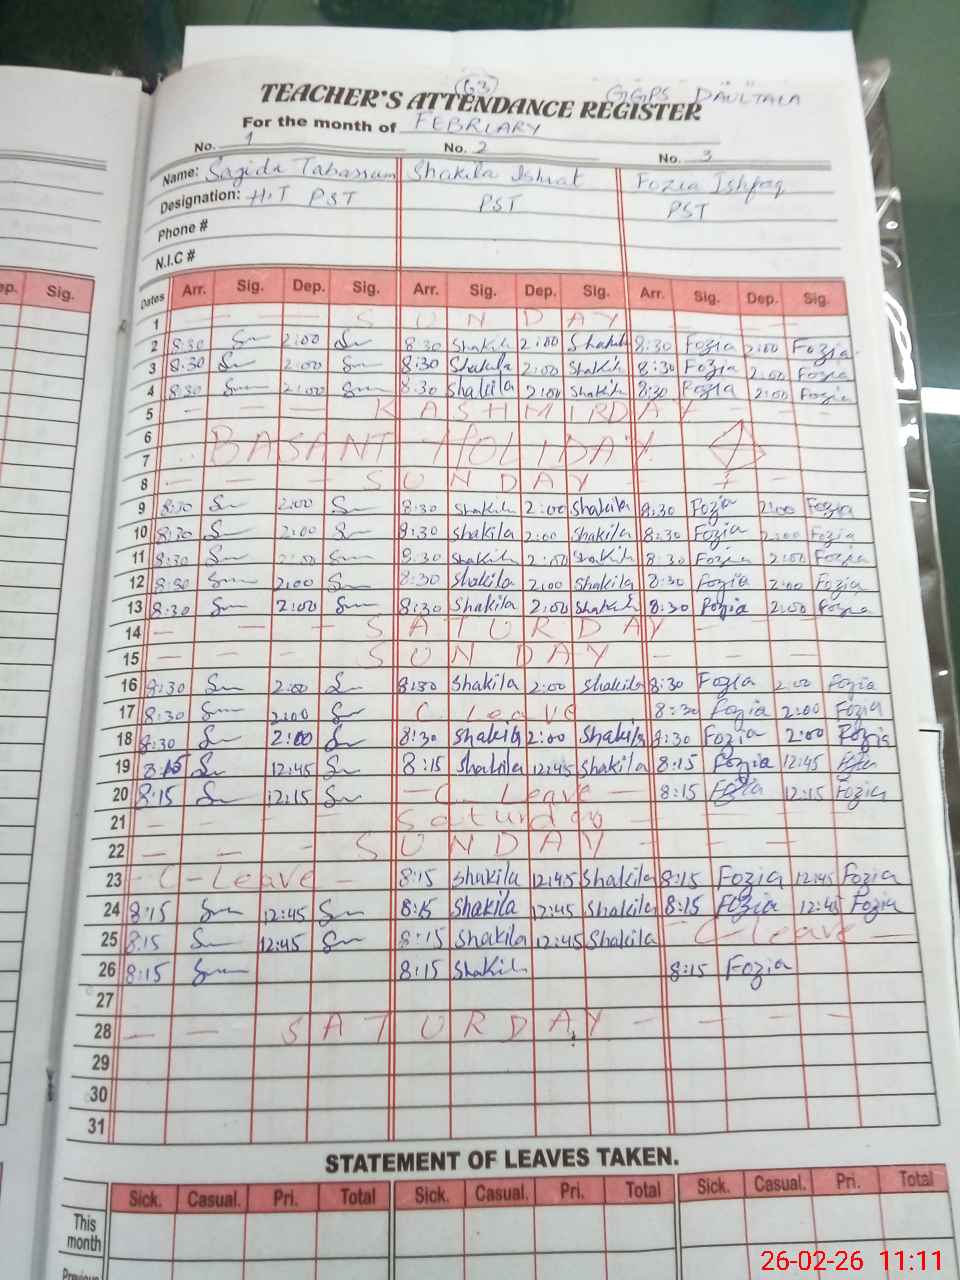 63
GGPS DAULTALA
TEACHER'S ATTENDANCE REGISTER
For the month of FEBRIARY
No. 1 No. 2 No. 3
Name: Sagida Tabassum Shakila Ishrat Fozia Ishfaq
Designation: H.T PST PST PST
Phone #
N.I.C #
ep. Sig. Dates Arr. Sig. Dep. Sig. Arr. Sig. Dep. Sig. Arr. Sig. Dep. Sig.
1 — — — SUNDAY — — —
2 8:30 2:00 8:30 Shakila 2:00 Shakila 8:30 Fozia 2:00 Fozia
3 8:30 2:00 8:30 Shakila 2:00 Shakila 8:30 Fozia 2:00 Fozia
4 8:30 2:00 8:30 Shakila 2:00 Shakila 8:30 Fozia 2:00 Fozia
5 — — — KASHMIRDAY — — —
6
BASANT HOLIDAY
7
8 — — — SUNDAY — — —
9 8:30 2:00 8:30 Shakila 2:00 Shakila 8:30 Fozia 2:00 Fozia
10 8:30 2:00 8:30 Shakila 2:00 Shakila 8:30 Fozia 2:00 Fozia
11 8:30 2:00 8:30 Shakila 2:00 Shakila 8:30 Fozia 2:00 Fozia
12 8:30 2:00 8:30 Shakila 2:00 Shakila 8:30 Fozia 2:00 Fozia
13 8:30 2:00 8:30 Shakila 2:00 Shakila 8:30 Fozia 2:00 Fozia
14 — — — SATURDAY — — —
15 — — — SUNDAY — — —
16 8:30 2:00 8:30 Shakila 2:00 Shakila 8:30 Fozia 2:00 Fozia
17 8:30 2:00 C. Leave 8:30 Fozia 2:00 Fozia
18 8:30 2:00 8:30 Shakila 2:00 Shakila 8:30 Fozia 2:00 Fozia
19 8:15 12:45 8:15 Shakila 12:45 Shakila 8:15 Fozia 12:45 Fozia
20 8:15 12:15 — C. Leave — 8:15 Fozia 12:15 Fozia
21 — — — Saturday — — —
22 — — — SUNDAY — — —
23 - C-Leave - 8:15 Shakila 12:45 Shakila 8:15 Fozia 12:45 Fozia
24 8:15 12:45 8:15 Shakila 12:45 Shakila 8:15 Fozia 12:45 Fozia
25 8:15 12:45 8:15 Shakila 12:45 Shakila - C-leave -
26 8:15 8:15 Shakila 8:15 Fozia
27
28 — — SATURDAY — — — —
29
30
31
STATEMENT OF LEAVES TAKEN.
Sick. Casual. Pri. Total Sick. Casual. Pri. Total Sick. Casual. Pri. Total
This
month
Previous
26-02-26 11:11